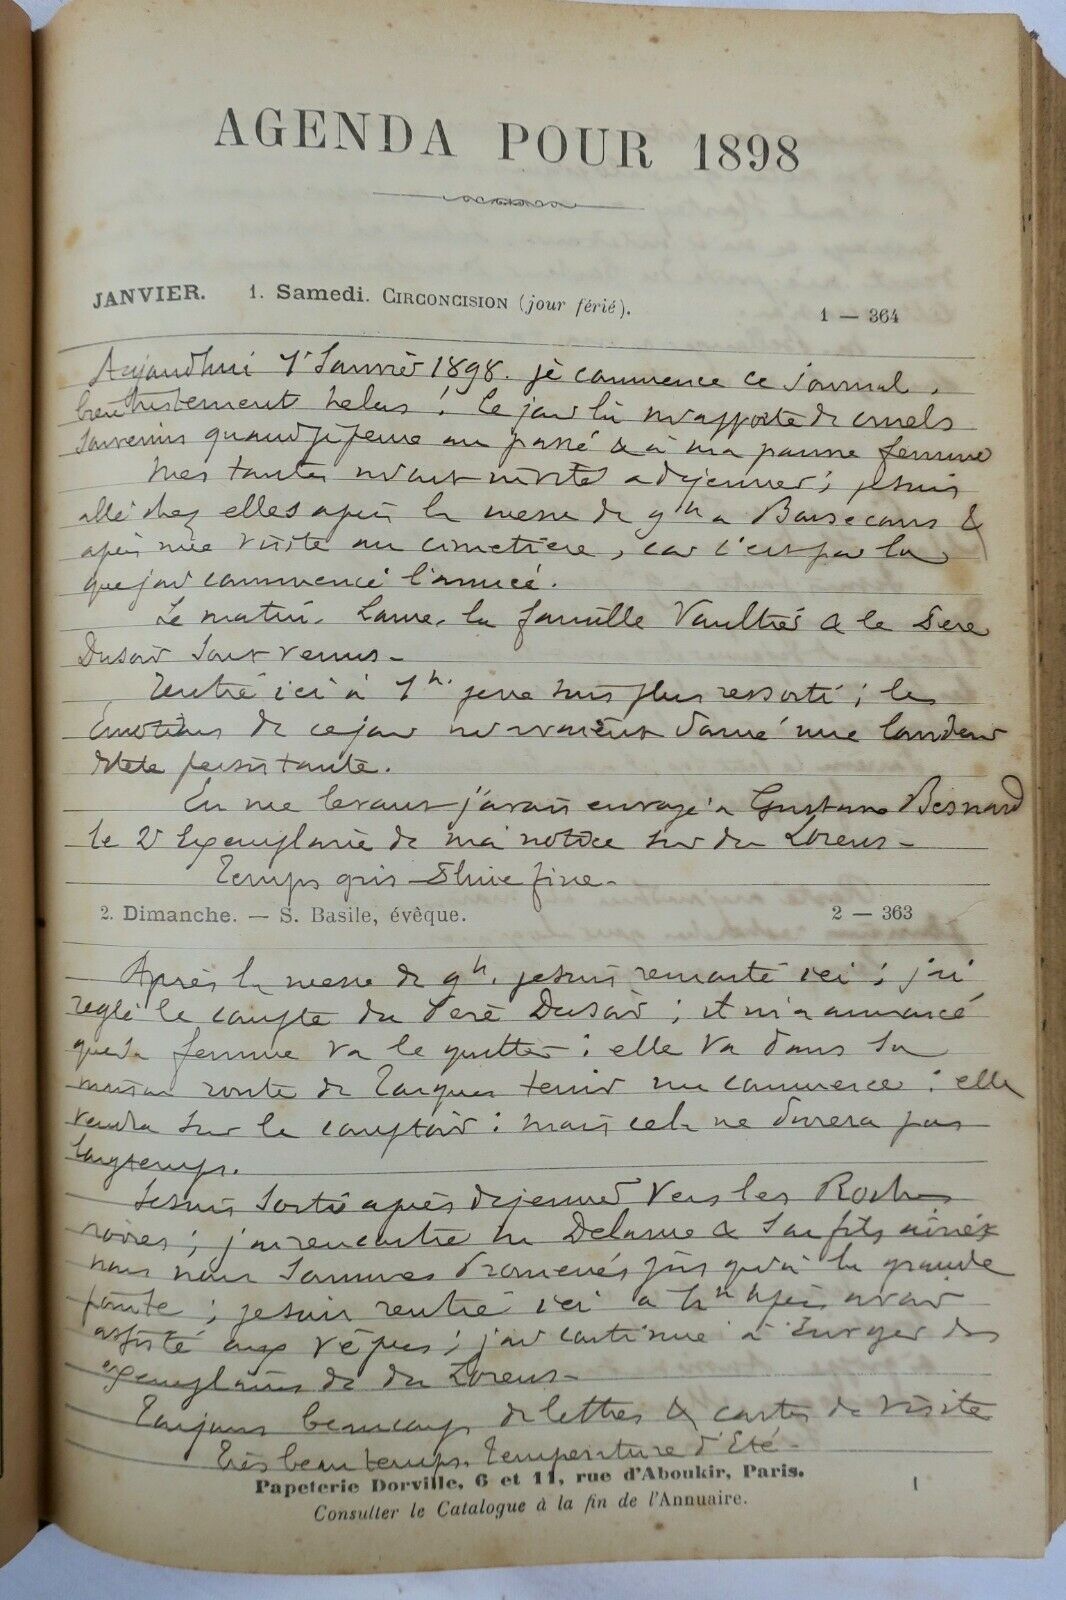 AGENDA POUR 1898
JANVIER. 1. Samedi. CIRCONCISION (jour férié). 1 — 364
Aujourdhui 1r Janvier 1898. je commence ce journal,
bien tristement helas! ce jour là m'apporte de cruels
souvenirs quand je pense au passé & à ma pauvre femme
Mes tantes m'ont invité a dejeuner; je suis
allé chez elles après la messe de 9h a &
après une visite au cimetière, car c'est par la
que j'ai commencé l'année.
Le matin. la famille Vaultier & le Pere
Dusoir sont venus -
Rentré ici à 1h. je ne suis plus ressorti; les
emotions de ce jour m'avaient donné une lourdeur
de tete persistante.
En me levant j'avais envoyé a Gustave Besnard
le 2e exemplaire de ma notice sur du Lorens -
Temps gris - Pluie fine -
2. Dimanche. — S. Basile, évêque. 2 — 363
Après la messe de 9h. je suis remonté ici; j'ai
reglé le compte du Père Dusoir; il m'a annoncé
que sa femme va le quitter: elle va dans sa
maison route de tenir un commerce: elle
vendra sur le comptoir: mais cela ne durera pas
longtemps.
Je suis sorti après dejeuner vers les Roches
noires; j'ai rencontré Mr Delarue & son fils ainé &
nous nous sommes promenés jusqu'à la grande
pointe; je suis rentré ici a après avoir
assisté aux vêpres; j'ai continué à envoyer des
exemplaires de du Lorens -
Toujours beaucoup de lettres & cartes de visite
Très beau temps. Temperature d'Eté -
Papeterie Dorville, 6 et 11, rue d'Aboukir, Paris. 1
Consulter le Catalogue à la fin de l'Annuaire.